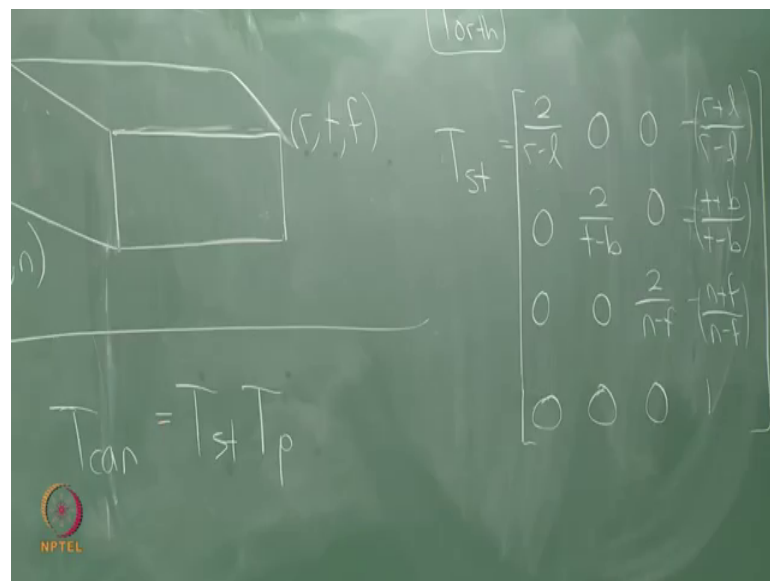 Torth
(r,t,f)
,n)
T_st = [ 2/(r-l) 0 0 -(r+l)/(r-l)
0 2/(t-b) 0 -(t+b)/(t-b)
0 0 2/(n-f) -(n+f)/(n-f)
0 0 0 1 ]
T_can = T_st T_p
NPTEL